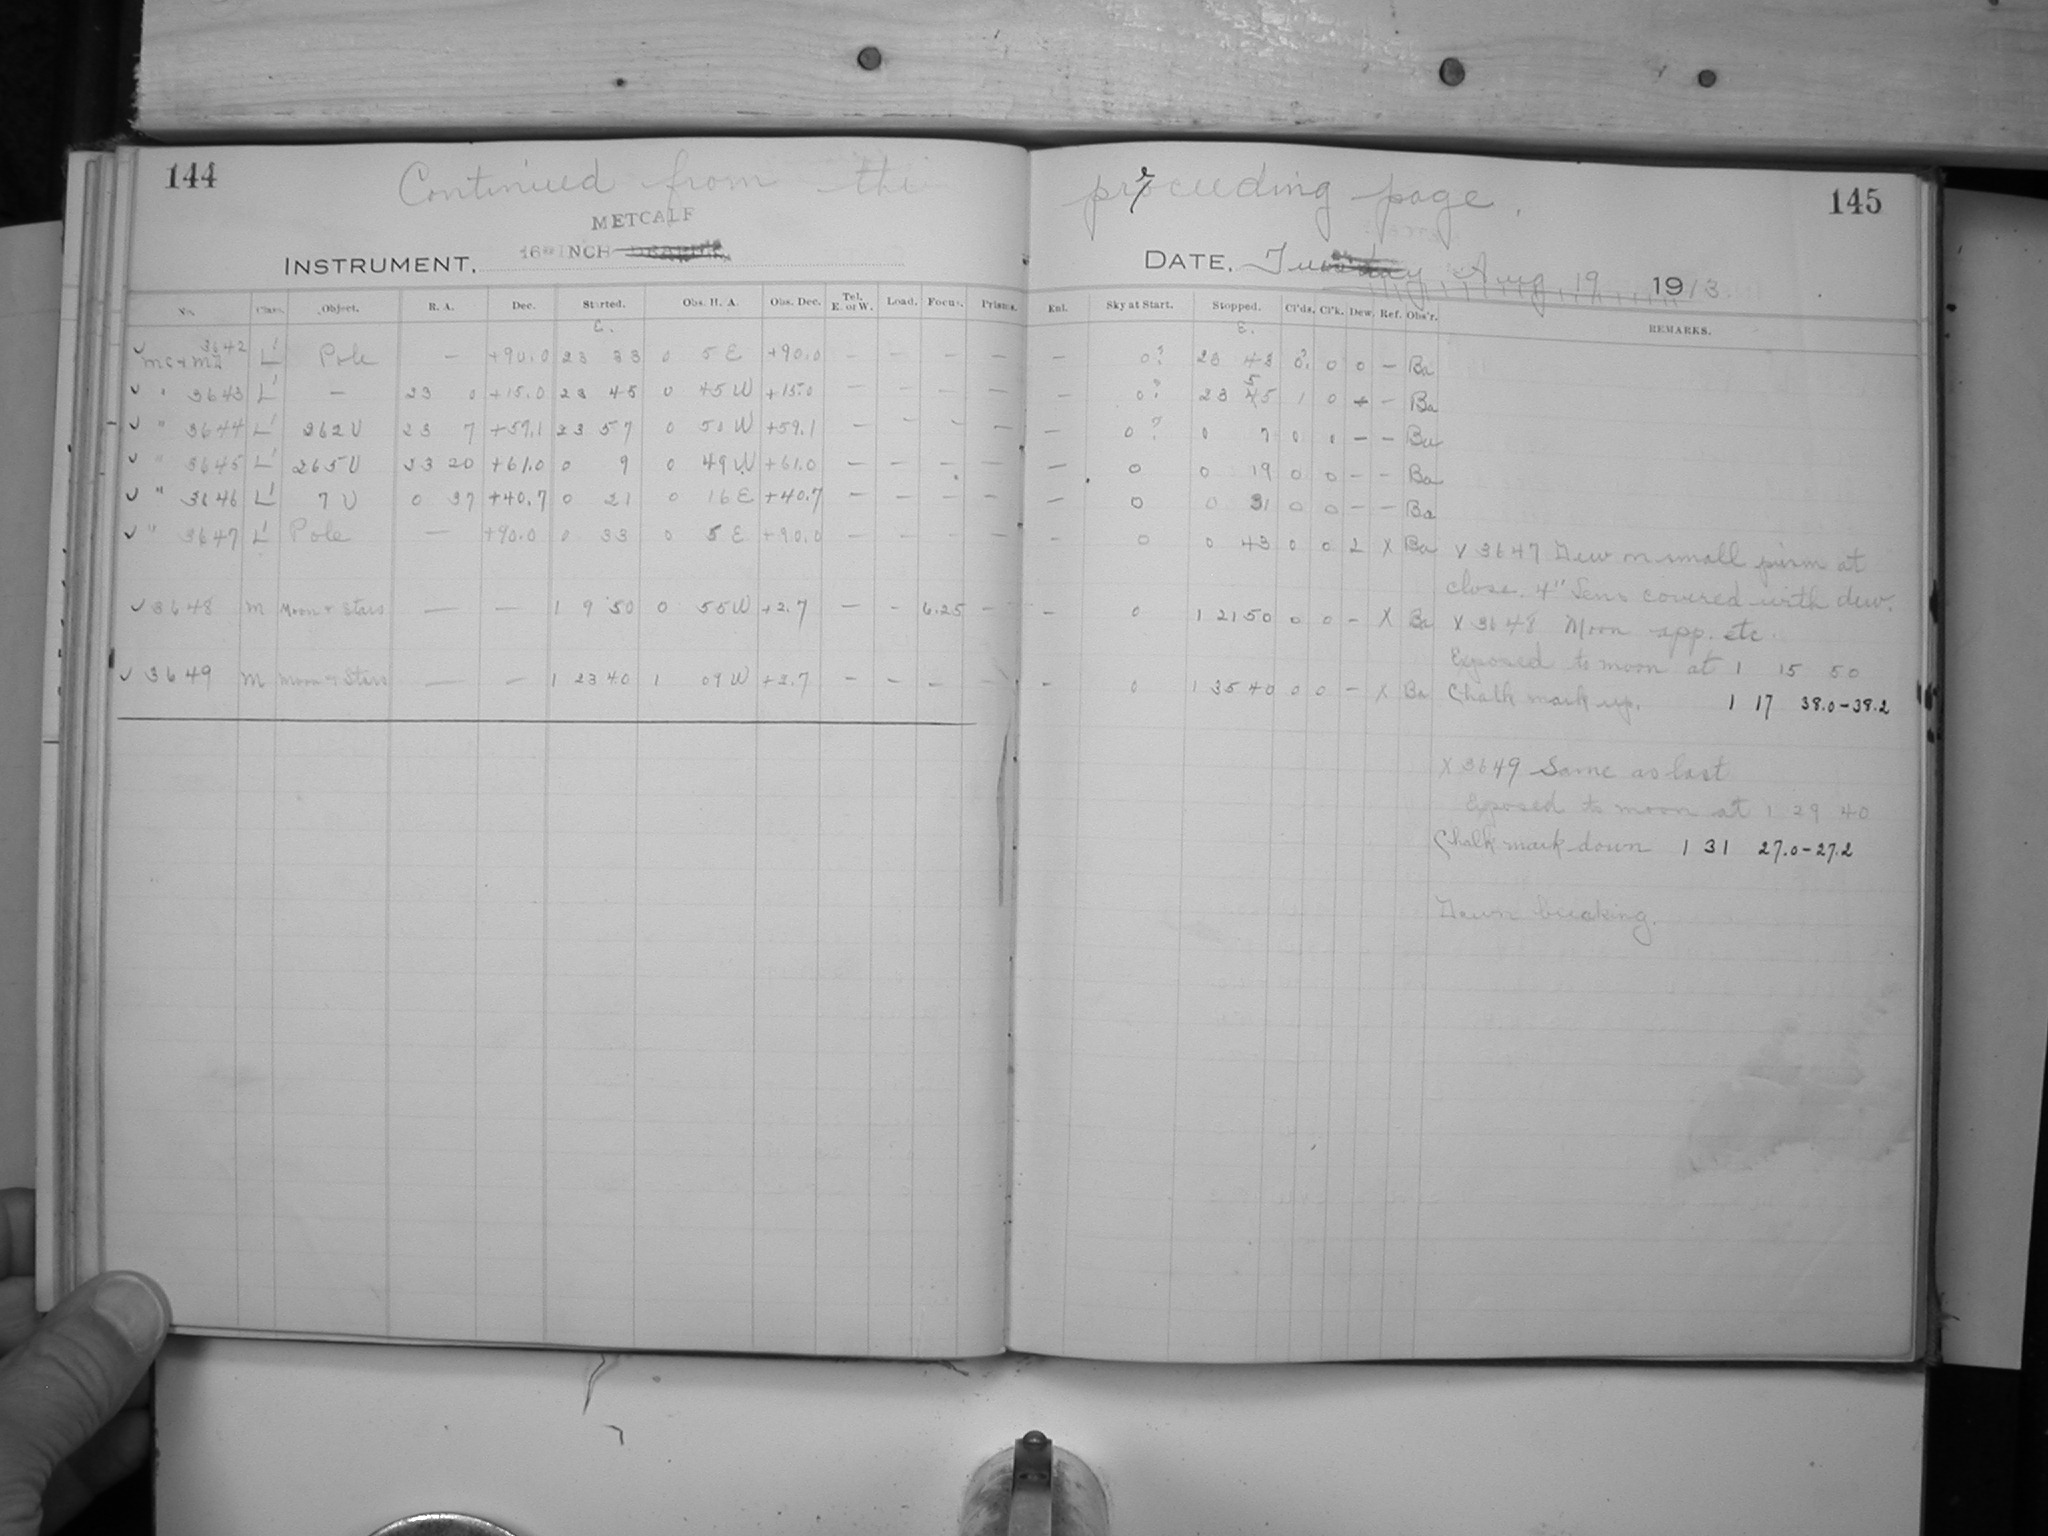 144 Continued from the preceeding page. 145
METCALF
INSTRUMENT. 16 INCH DATE. Tuesday Aug 19 1913.
No. Class. Object. R. A. Dec. Started. Obs. H. A. Obs. Dec. Tel. E. or W. Load. Focus. Prisms. Enl. Sky at Start. Stopped. Cl'ds. Cl'k. Dew. Ref. Obs'r. REMARKS.
3642 L' Pole — +90.0 23 33 0 5 E +90.0 — — — — — 0? 23 43 0? 0 0 — Ba
✓ " 3643 L' — 23 0 +15.0 23 45 0 45 W +15.0 — — — — — 0? 23 55 1 0 — Ba
✓ " 3644 L' 362 U 23 7 +59.1 23 57 0 50 W +59.1 — — — — — 0? 0 7 0 0 — — Ba
✓ " 3645 L' 265 U 23 20 +61.0 0 9 0 49 W +61.0 — — — — — 0 0 19 0 0 — — Ba
✓ " 3646 L' 7 U 0 37 +40.7 0 21 0 16 E +40.7 — — — — — 0 0 31 0 0 — — Ba
✓ " 3647 L' Pole — +90.0 0 33 0 5 E +90.0 — — — — — 0 0 43 0 0 2 X Ba X 3647 Dew on small prism at
close. 4" Lens covered with dew.
✓ 3648 M Moon & Stars — — 1 9 50 0 55 W +2.7 — — 6.25 — — 0 1 21 50 0 0 — X Ba X 3648 Moon app. etc.
Exposed to moon at 1 15 50
✓ 3649 M Moon & Stars — — 1 23 40 1 09 W +2.7 — — — — — 0 1 35 40 0 0 — X Ba Chalk mark up. 1 17 38.0-38.2
X 3649 Same as last
Exposed to moon at 1 29 40
Chalk mark down 1 31 27.0-27.2
Dawn breaking.